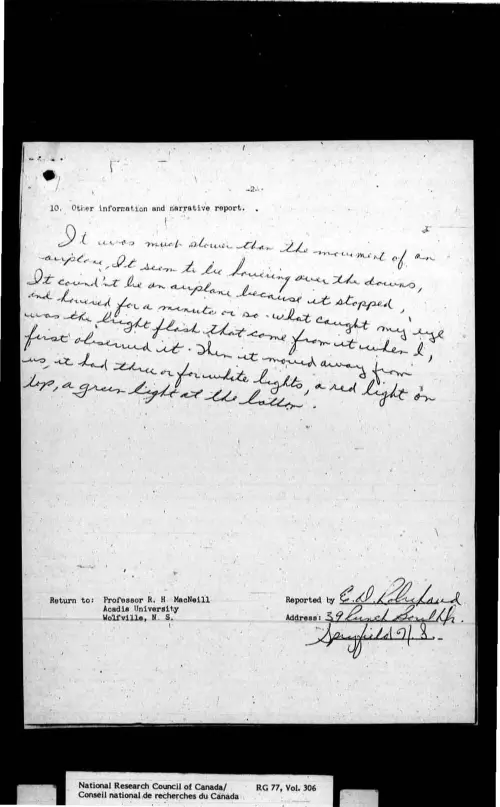 -2-
10. Other information and narrative report.
It was much slower than the movement of an
airplane, It seem to be hovering over the downs,
It could'nt be an airplane because it stopped,
and hovered for a minute or so. what caught my eye
was the bright flash that come from it when I,
first observed it. Then it moved away from
us, it had three or for white lights, a red light on
top, a green light at the bottom.
Return to: Professor R. H MacNeill
Acadia University
Wolfville, N. S.
Reported by E. D.
Address: 39
N. S.
National Research Council of Canada/
Conseil national de recherches du Canada
RG 77, Vol. 306